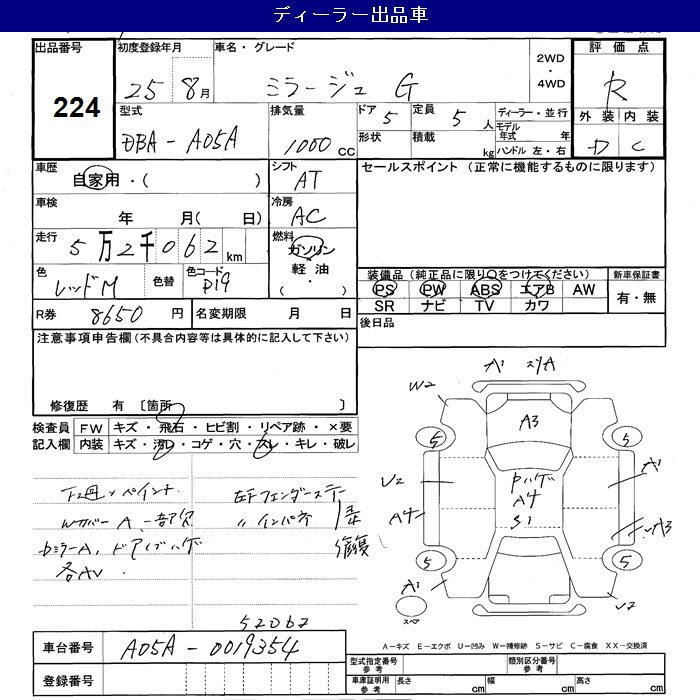 ディーラー出品車
出品番号
224
初度登録年月
25 8月
車名・グレード
ミラージュ G
2WD
・
4WD
評価点
R
外装 内装
D C
型式
DBA - A05A
排気量
1000 cc
ドア 5
定員 5 人
形状
積載 kg
ディーラー・並行
モデル年式 年
ハンドル 左・右
車歴
自家用・( )
シフト
AT
セールスポイント (正常に機能するものに限ります)
車検
年 月( 日)
冷房
AC
走行
5万2千062 km
燃料
ガソリン
軽油
・
( )
色
レッドM
色替
色コード
P19
装備品(純正品に限り○をつけてください)
PS PW ABS エアB AW
SR ナビ TV カワ
新車保証書
有・無
R券 8650 円
名変期限 月 日
後日品
注意事項申告欄(不具合内容等は具体的に記入して下さい)
修復歴 有 〔箇所 〕
検査員 FW キズ・飛石・ヒビ割・リペア跡・×要
記入欄 内装 キズ・汚レ・コゲ・穴・スレ・キレ・破レ
ペイント
Wカバー A、一部欠
ドアノブハゲ
各AU
左Fフェンダーステー
〃インパネ
修復
52062
A1
W2
A3
5 5
U2
A4
Pハゲ
A4
S1
A1
A3
5 5
A1
U2
スペア
A－キズ E－エクボ U－凹み W－補修跡 S－サビ C－腐食 XX－交換済
車台番号
A05A - 0019354
登録番号
型式指定番号
参考
類別区分番号
参考
車庫証明用
参考
長さ cm
幅 cm
高さ cm